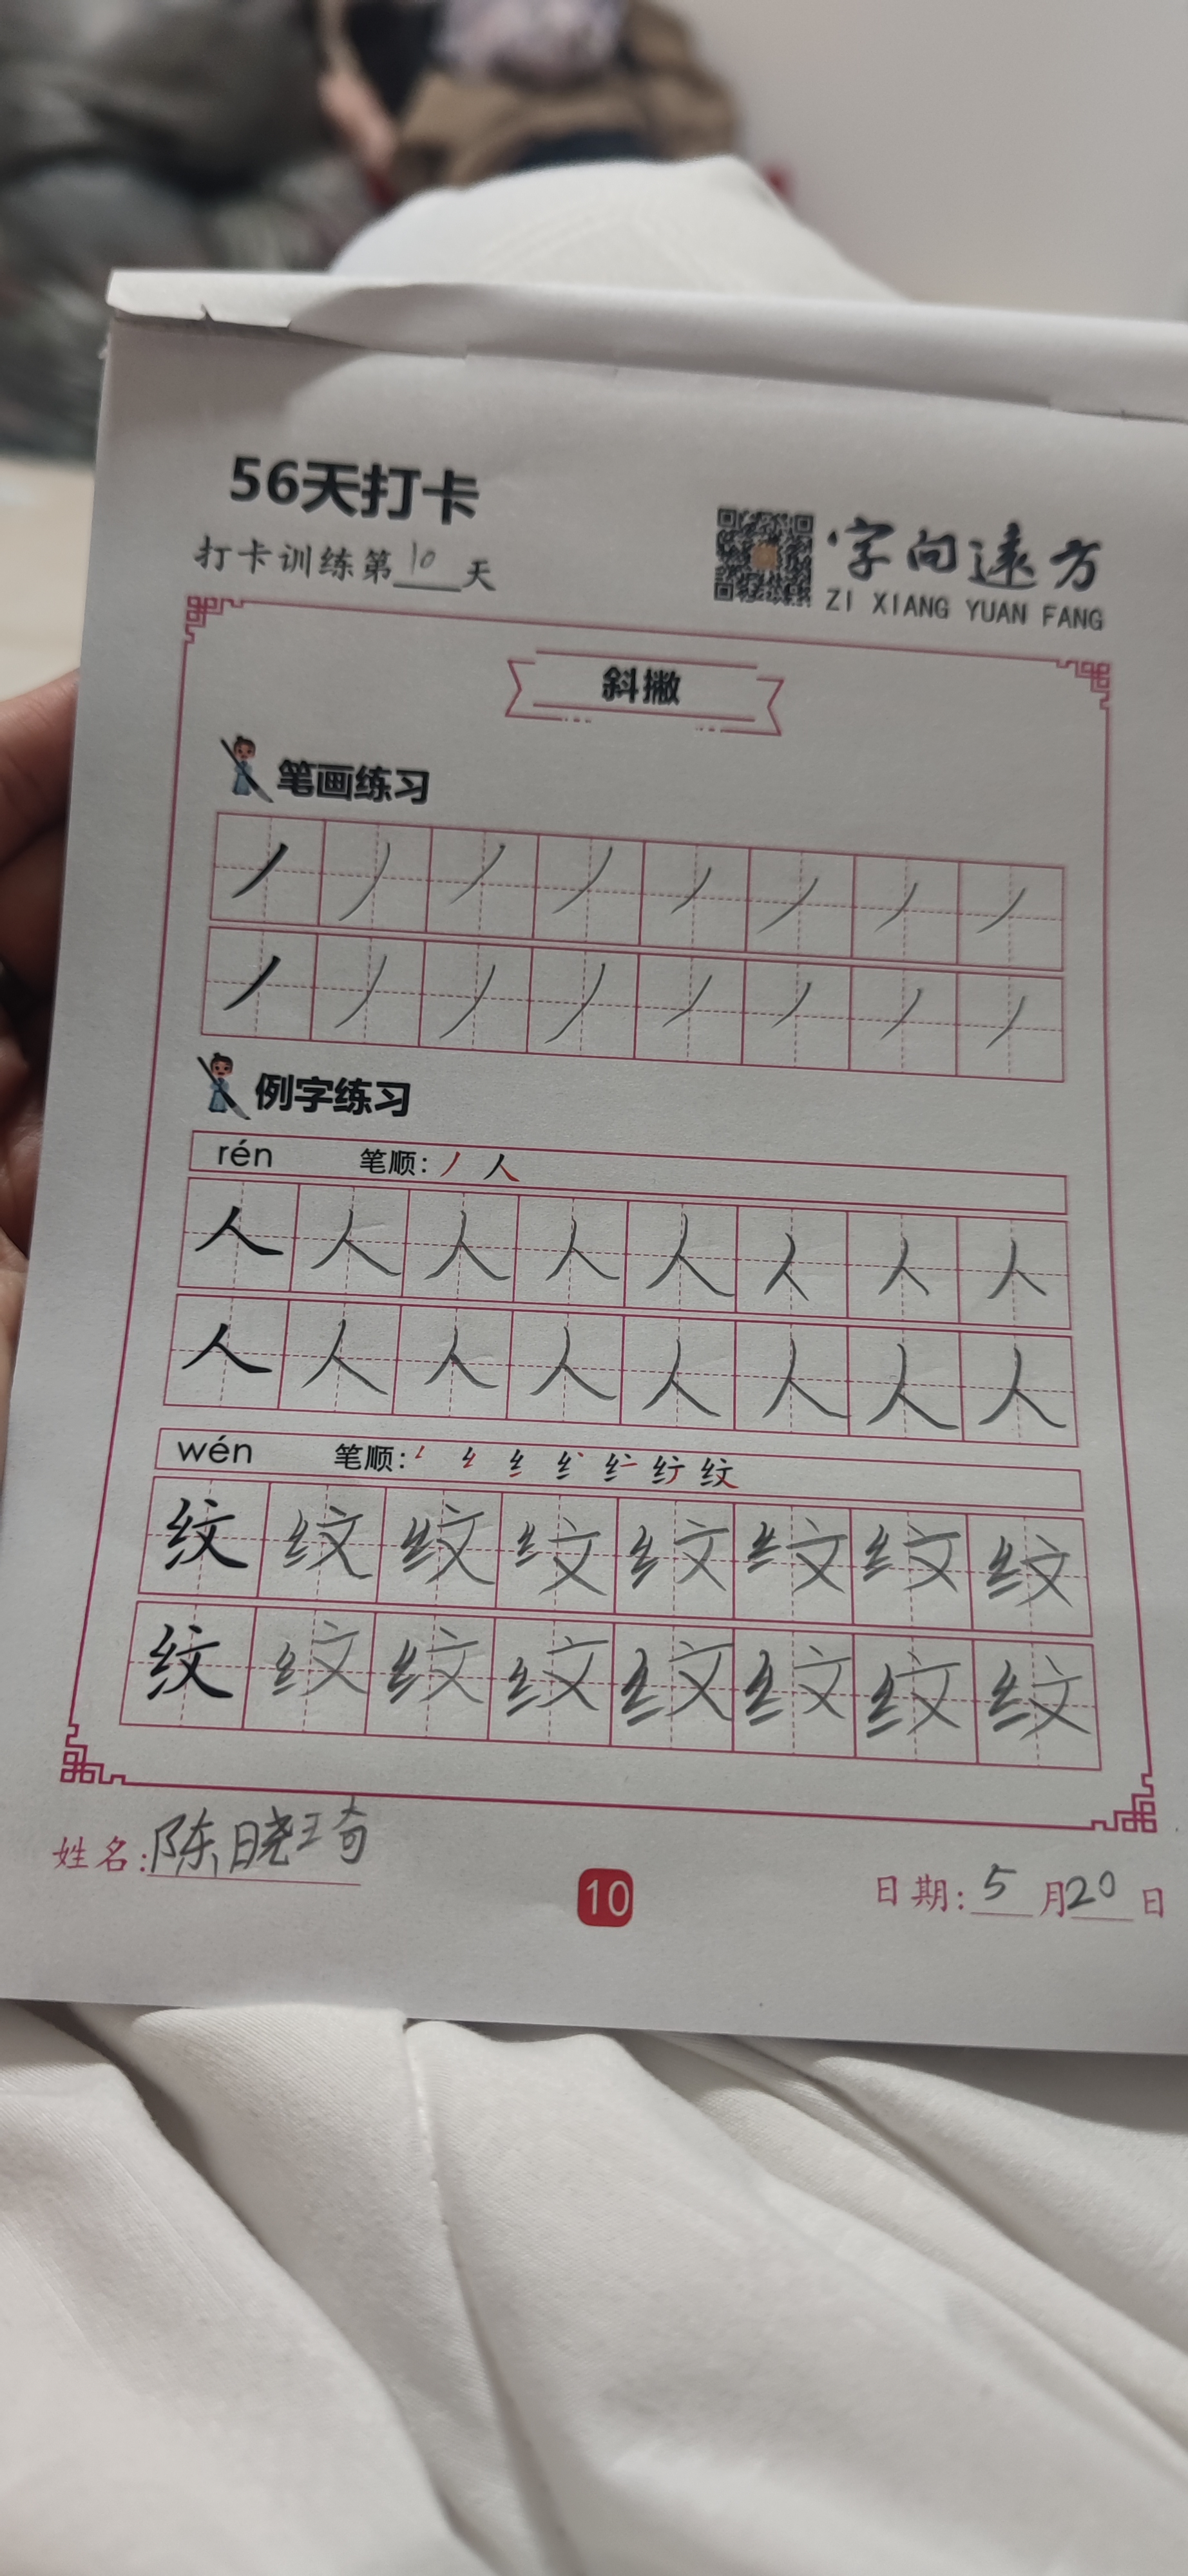 56天打卡
打卡训练第10天
字向远方
ZI XIANG YUAN FANG
斜撇
笔画练习
例字练习
rén 笔顺: 丿 人
人 人 人 人 人 人 人 人
人 人 人 人 人 人 人 人
wén 笔顺: 纹
纹 纹 纹 纹 纹 纹 纹 纹
纹 纹 纹 纹 纹 纹 纹 纹
姓名: 陈晓琦
10
日期: 5月20日